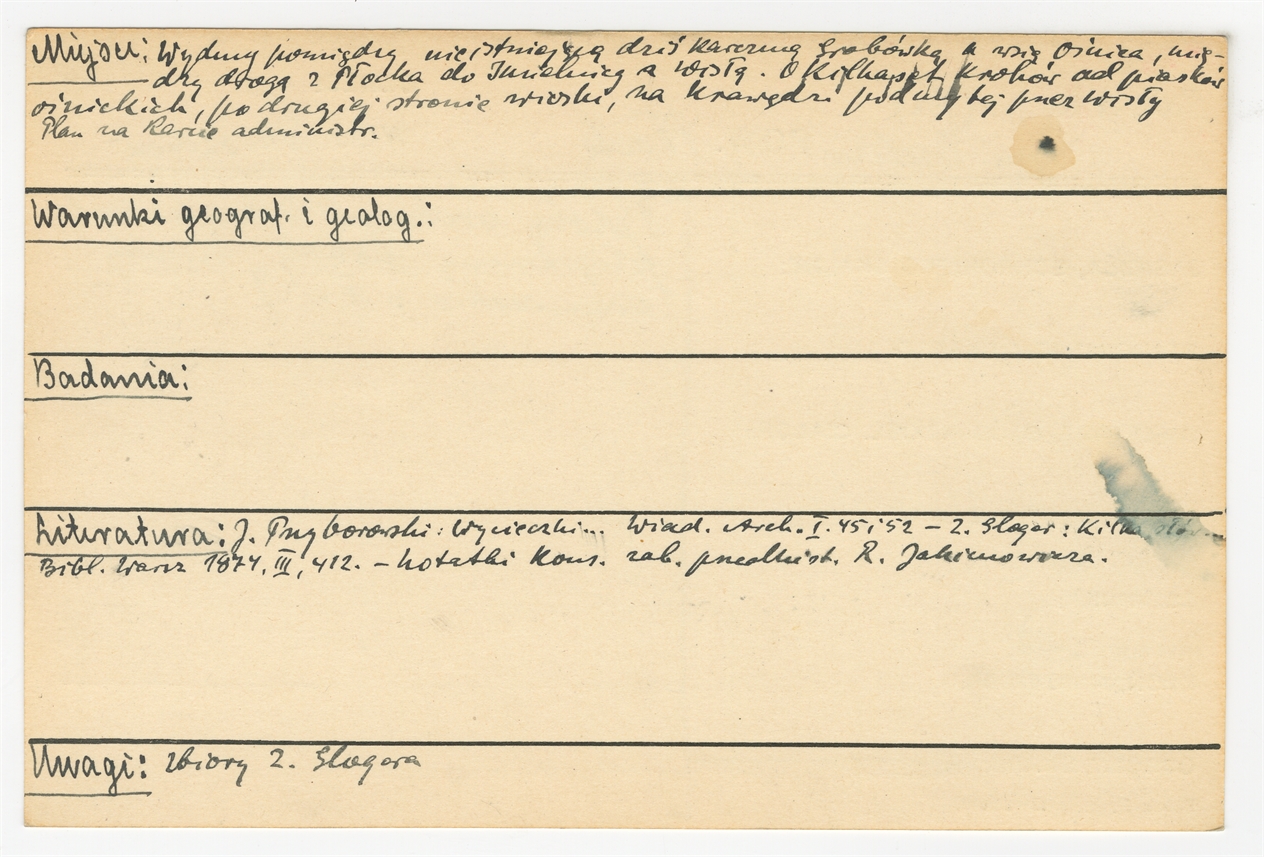 Miejsce: Wydmy pomiędzy nieistniejącą dziś karczmą Grabówką a wsią Ośnica, mię-
dzy drogą z Płocka do Imielnicy a Wisłą. O kilkaset kroków od piasków
ośnickich, po drugiej stronie wioski, na krawędzi podmytej przez Wisłę
Plan na karcie administr.
Warunki geograf. i geolog.:
Badania:
Literatura: J. Przyborowski: Wycieczki... Wiad. Arch. I. 45 i 52 – Z. Gloger: Kilka słów...
Bibl. Warsz 1874, III, 412. – Notatki Kons. zab. przedhist. R. Jakimowicza.
Uwagi: Zbiory Z. Glogera